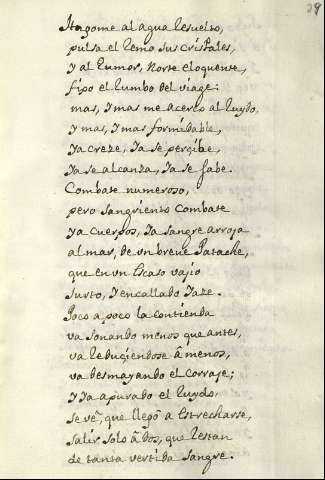 29
Hagome al agua resuelto,
pulsa el remo sus cristales,
y al rumor, Norte eloquente,
fixo el rumbo del viage:
mas, y mas me acerco al ruydo,
y mas, y mas formidable,
ya creze, ya se percibe,
ya se alcanza, ya se sabe.
Combate numeroso,
pero sangriento combate
ya cuerpos, ya sangre arroja
al mar, de un breve Patache,
que en un escaso vajio
surto, y encallado yaze.
Poco a poco la contienda
va sonando menos que antes,
va reduciendose à menos,
va desmayando el corraje;
y ya apurado el ruydo
se ve, que llegò a estrecharse,
salir solo à dos, que restan
de tanta vertida sangre.